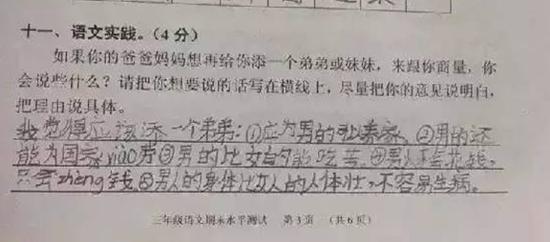 十一、语文实践。(4分)
如果你的爸爸妈妈想再给你添一个弟弟或妹妹，来跟你商量，你
会说些什么？请把你想要说的话写在横线上，尽量把你的意见说明白，
把理由说具体。
我觉得应该添一个弟弟：①应为男的能养家，②男的还
能为国家xiào劳③男的比女的能吃苦。④男人不乱花钱，
只会zhèng钱⑤男人的身体比女人的人体壮，不容易生病。
三年级语文期末水平测试 第3页 (共6页)